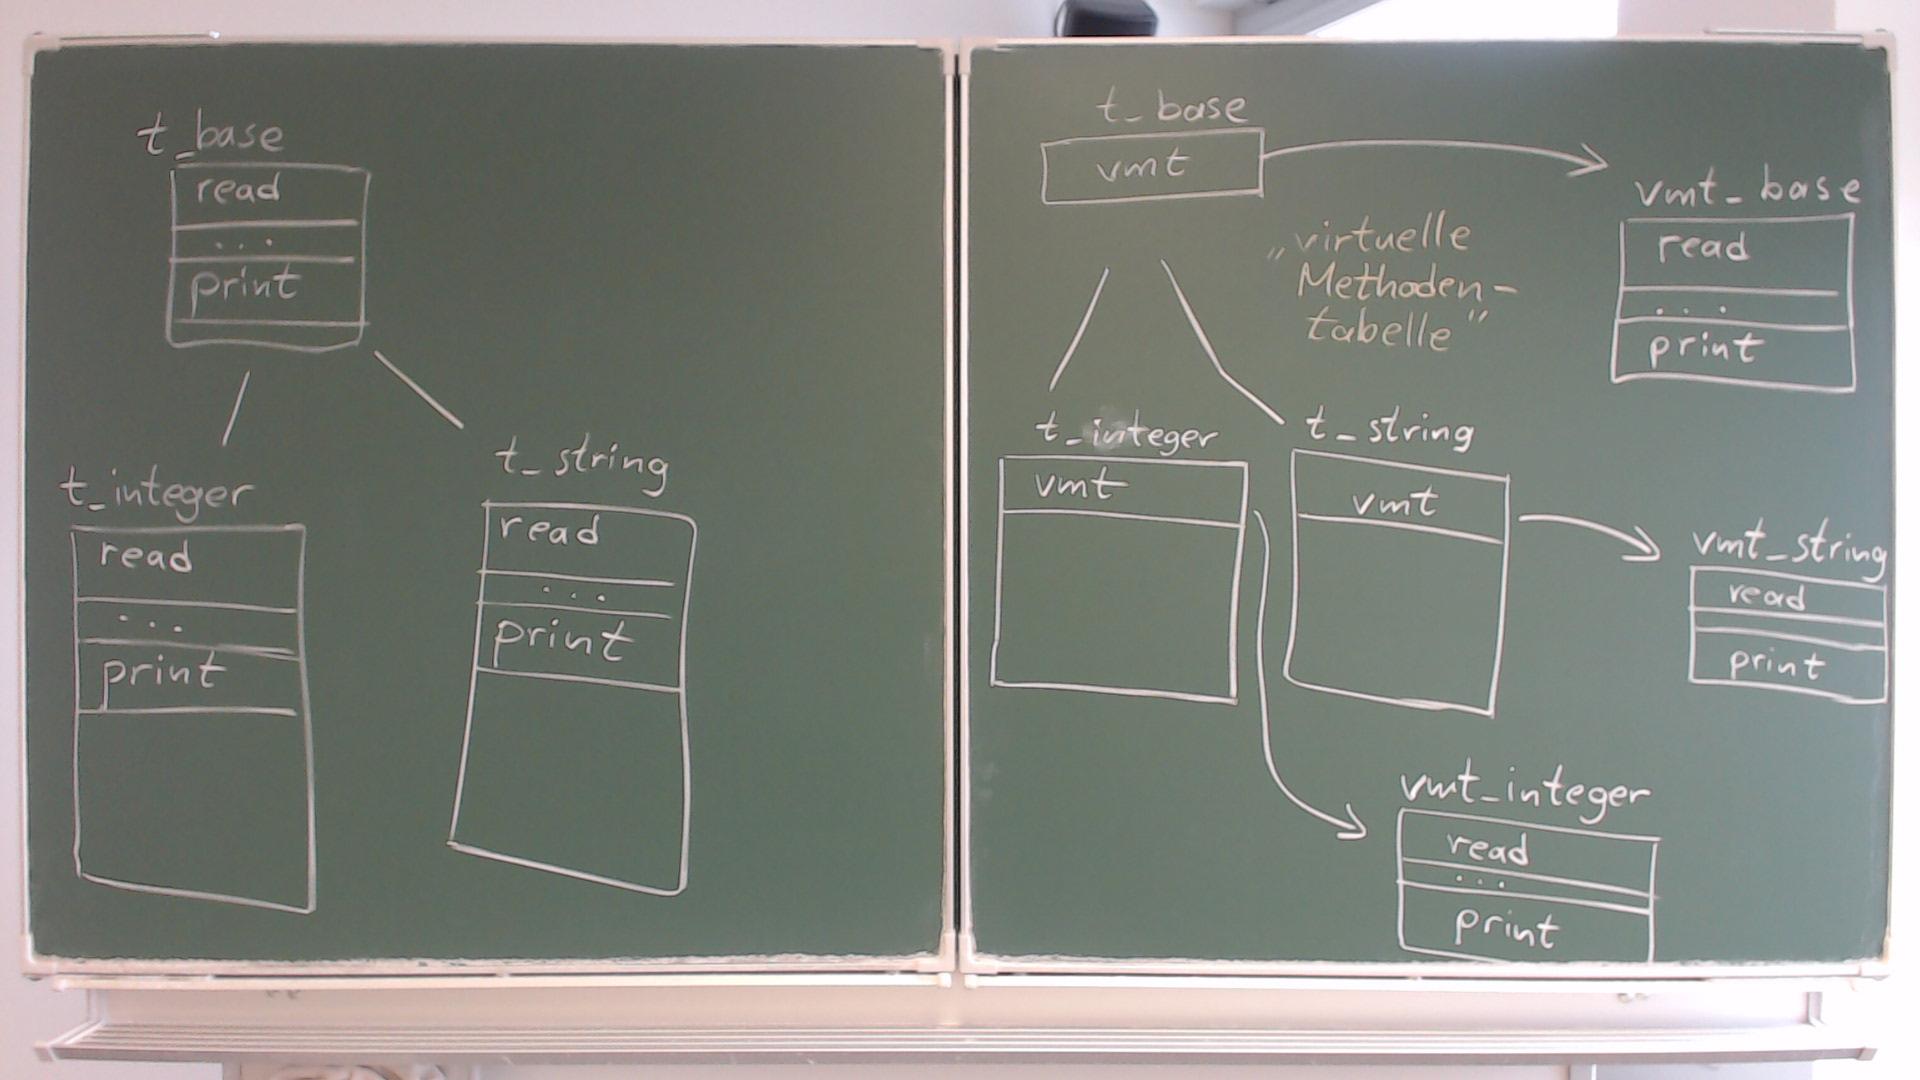 t_base
read
...
print
t_integer
read
...
print
t_string
read
...
print
t_base
vmt
„virtuelle
Methoden-
tabelle“
vmt_base
read
...
print
t_integer
vmt
t_string
vmt
vmt_string
read
print
vmt_integer
read
...
print